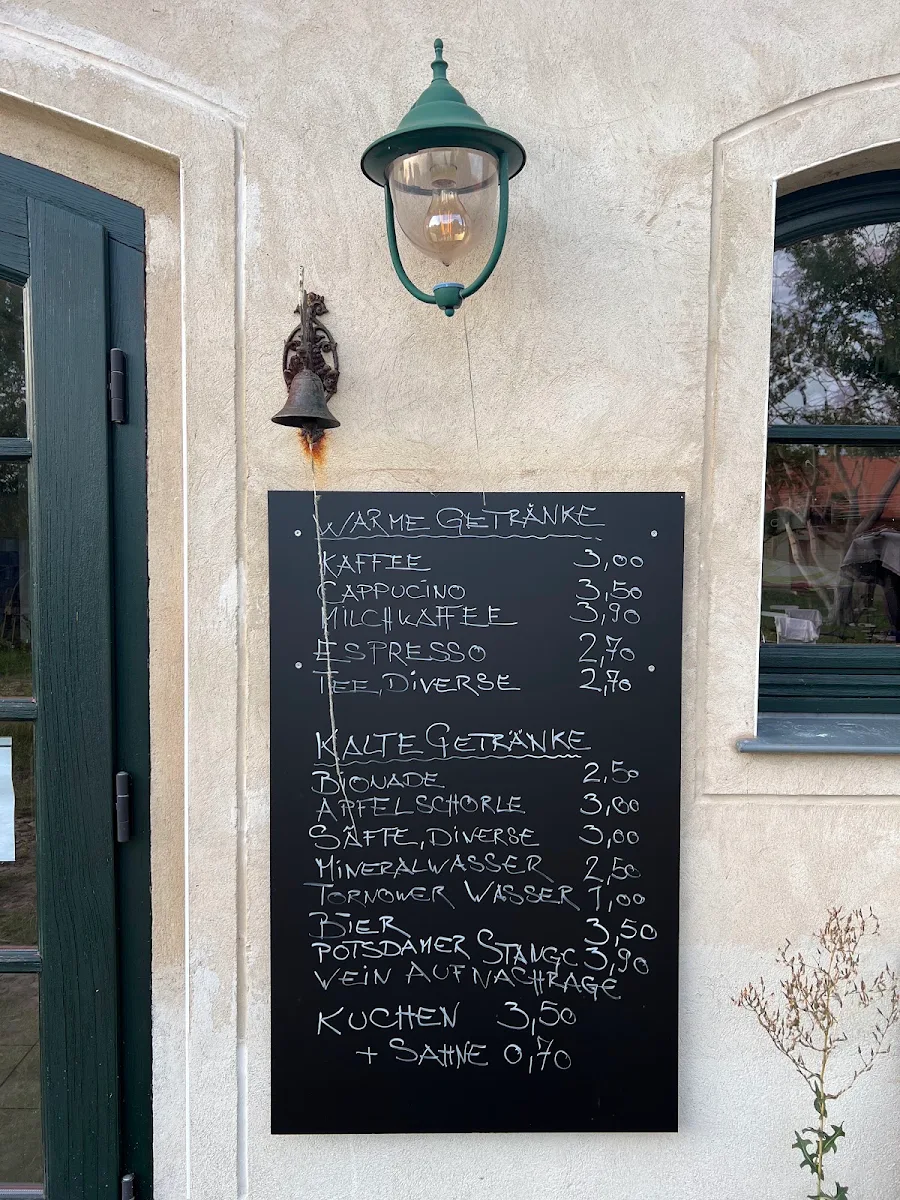 WARME GETRÄNKE
KAFFEE 3,00
CAPPUCINO 3,50
MILCHKAFFEE 3,90
ESPRESSO 2,70
TEE, DIVERSE 2,70
KALTE GETRÄNKE
BIONADE 2,50
APFELSCHORLE 3,00
SÄFTE, DIVERSE 3,00
MINERALWASSER 2,50
TORNOWER WASSER 1,00
BIER 3,50
POTSDAMER STANGE 3,90
WEIN AUF NACHFRAGE
KUCHEN 3,50
+ SAHNE 0,70